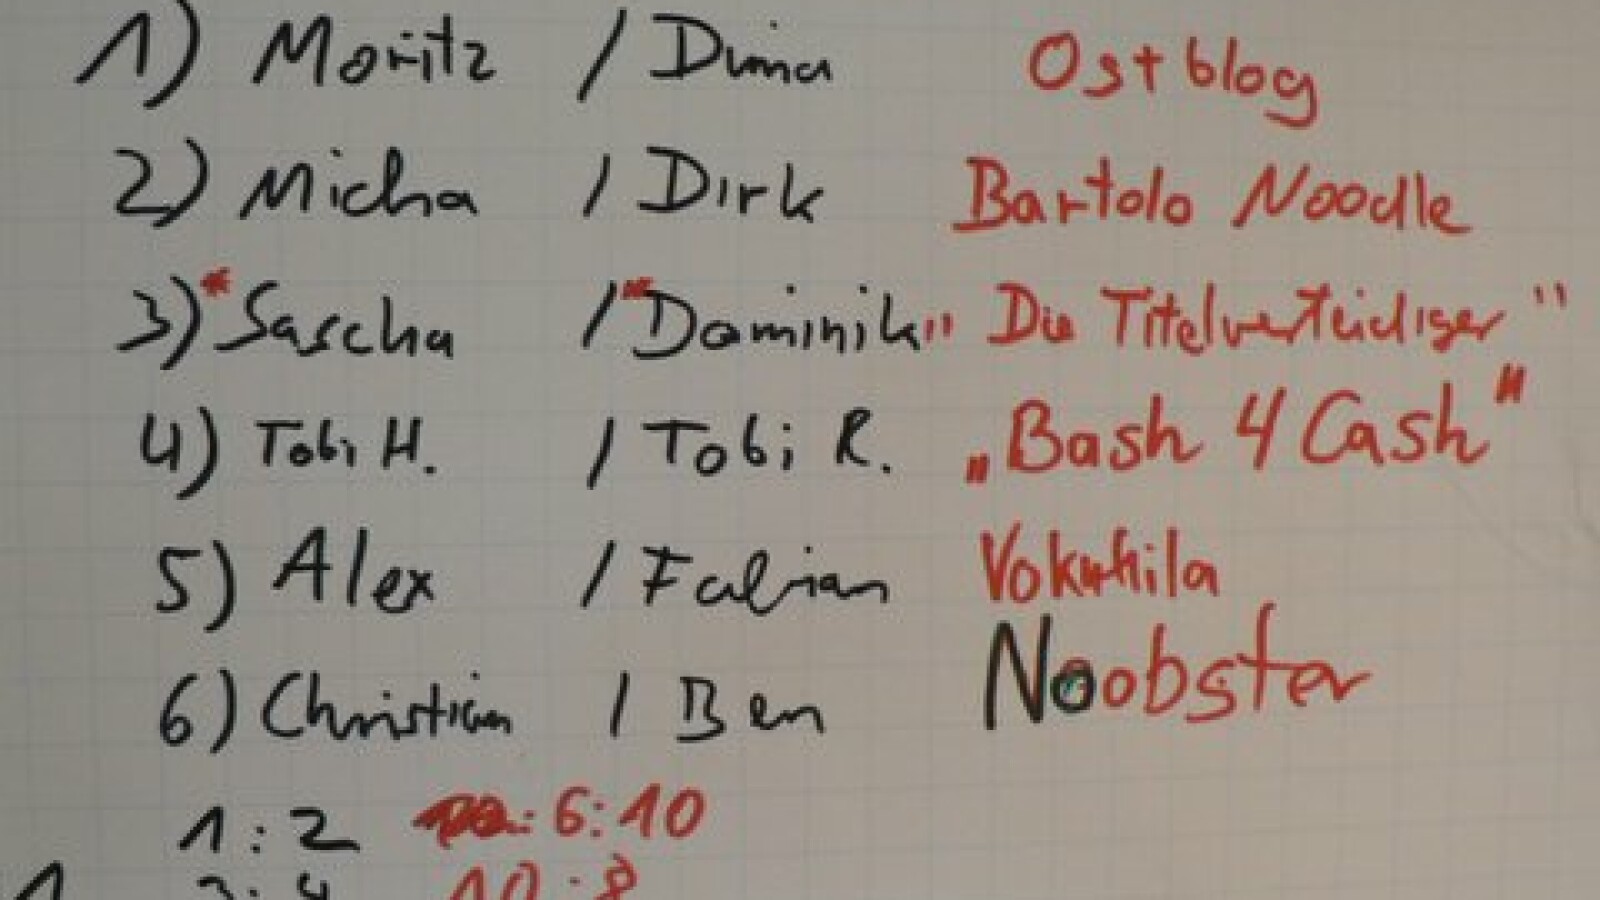 1) Moritz / Dima Ostblog
2) Micha / Dirk Bartolo Noodle
3) *Sascha / *Dominik "Die Titelverteidiger"
4) Tobi H. / Tobi R. „Bash 4 Cash"
5) Alex / Fabian Vokuhila
6) Christian / Ben Noobster
1:2 6:10
3:4 10:8